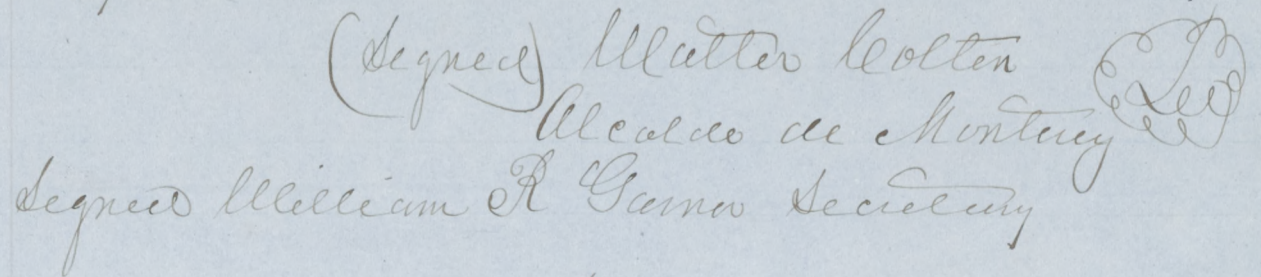 (Signed) Walter Colton
Alcalde de Monterey
Signed William R Garner Secretary